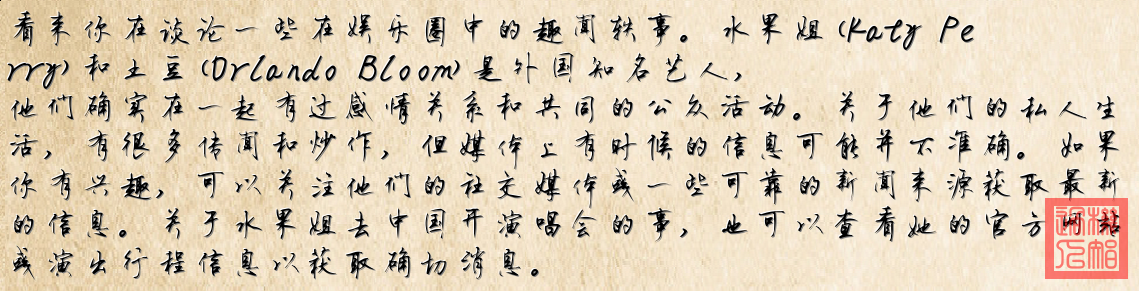 看来你在谈论一些在娱乐圈中的趣闻轶事。水果姐(Katy Pe
rry)和土豆(Orlando Bloom)是外国知名艺人，
他们确实在一起有过感情关系和共同的公众活动。关于他们的私人生
活，有很多传闻和炒作，但媒体上有时候的信息可能并不准确。如果
你有兴趣，可以关注他们的社交媒体或一些可靠的新闻来源获取最新
的信息。关于水果姐去中国开演唱会的事，也可以查看她的官方网站
或演出行程信息以获取确切消息。